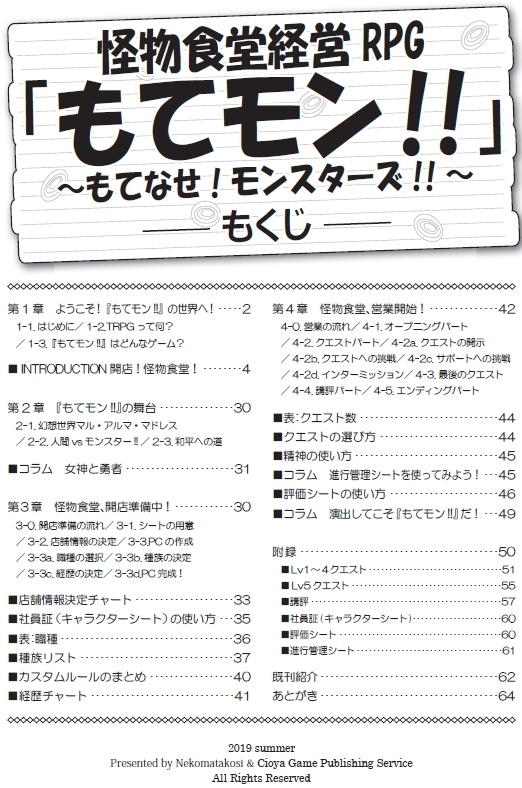 怪物食堂経営 RPG
「もてモン!!」
～もてなせ！モンスターズ!!～
もくじ
第１章　ようこそ！『もてモン!!』の世界へ！ ･････2
1-1. はじめに／ 1-2.TRPG って何？
／ 1-3.『もてモン!!』はどんなゲーム？
■ INTRODUCTION 開店！怪物食堂！ ･･･････4
第２章　『もてモン!!』の舞台 ･･････････････30
2-1. 幻想世界マル・アルマ・マドレス
／ 2-2. 人間 vs モンスター!!／ 2-3. 和平への道
■コラム　女神と勇者 ･････････････････････31
第３章　怪物食堂、開店準備中！ ･･･････････30
3-0. 開店準備の流れ／ 3-1. シートの用意
／ 3-2. 店舗情報の決定／ 3-3.PC の作成
／ 3-3a. 職種の選択／ 3-3b. 種族の決定
／ 3-3c. 経歴の決定／ 3-3d.PC 完成！
■店舗情報決定チャート ･･･････････････････33
■社員証（キャラクターシート）の使い方 ･･･35
■表：職種 ････････････････････････････36
■種族リスト ･･････････････････････････37
■カスタムルールのまとめ ･････････････････40
■経歴チャート ････････････････････････41
第４章　怪物食堂、営業開始！ ･････････････42
4-0. 営業の流れ／ 4-1. オープニングパート
／ 4-2. クエストパート／ 4-2a. クエストの開示
／ 4-2b. クエストへの挑戦／ 4-2c. サポートへの挑戦
／ 4-2d. インターミッション／ 4-3. 最後のクエスト
／ 4-4. 講評パート／ 4-5. エンディングパート
■表：クエスト数 ･･･････････････････････44
■クエストの選び方 ･････････････････････44
■精神の使い方 ････････････････････････45
■コラム　進行管理シートを使ってみよう！ ･･45
■評価シートの使い方 ･･･････････････････46
■コラム　演出してこそ『もてモン!!』だ！ ･･･49
附録 ････････････････････････････････50
■Lv1～４クエスト ･･････････････････････51
■Lv５クエスト ････････････････････････55
■講評 ･･････････････････････････････57
■社員証（キャラクターシート） ･･･････････60
■評価シート ･････････････････････････60
■進行管理シート ･･････････････････････61
既刊紹介 ････････････････････････････62
あとがき ････････････････････････････64
2019 summer
Presented by Nekomatakosi & Cioya Game Publishing Service
All Rights Reserved